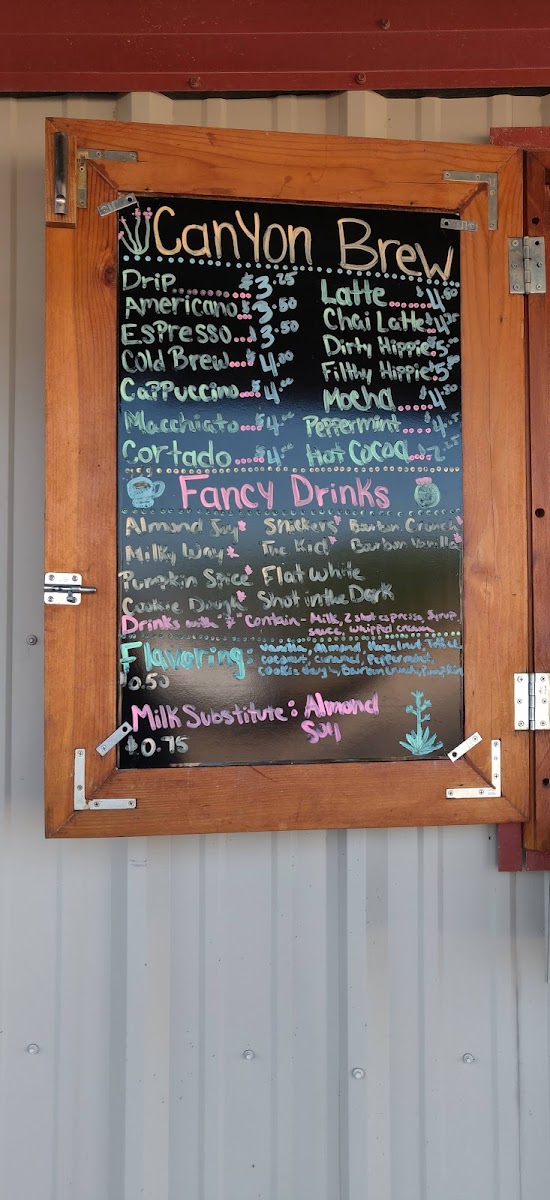 Canyon Brew
Drip $3.25
Americano $3.50
Espresso $3.50
Cold Brew $4.00
Cappuccino $4.00
Mlacchiato $4.00
Cortado $4.00
Latte $4.50
Chai Latte
Dirty Hippie
Filthy Hippie
Mocha $4.50
Peppermint
Hot Cocoa
Fancy Drinks
Almond Joy* Snickers* Bourbon Crunch*
Milky Way* The Kid* Bourbon Vanilla*
Pumpkin Spice* Flat White
Cookie Dough* Shot in the Dark
Drinks with "*" Contain - Milk, 2 shot espresso, Syrup,
sauce, whipped cream
Flavoring: Vanilla, Almond, Hazelnut, Toffee
coconut, caramel, Peppermint,
cookie dough, Bourbon Crunch, Pumpkin
$0.50
Milk Substitute: Almond
Soy
$0.75